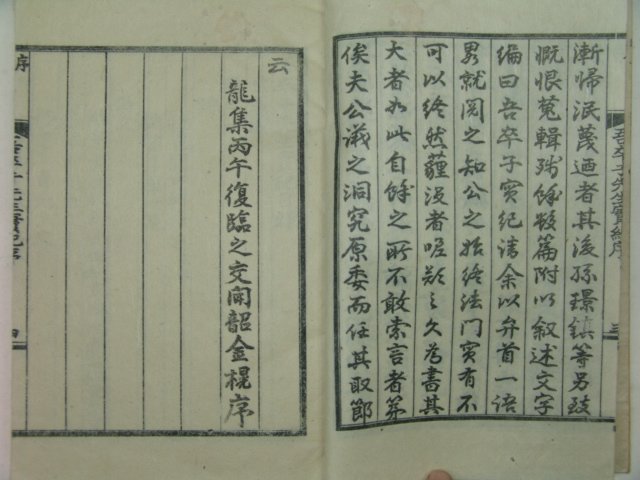 漸歸泯蔑迺者其後孫璟鎮等另致
慨恨蒐輯殘餘數篇附以叙述文字
編曰吾卒子實紀請余以弁首一語
男就閱之知公之始終法門實有不
可以終然薶沒者喟歎之久為書其
大者如此自餘之所不敢索言者第
俟夫公議之洞究原委而任其取節
云
龍集丙午復臨之交聞韶金榥序
吾卒子先生實紀序
三
序
四